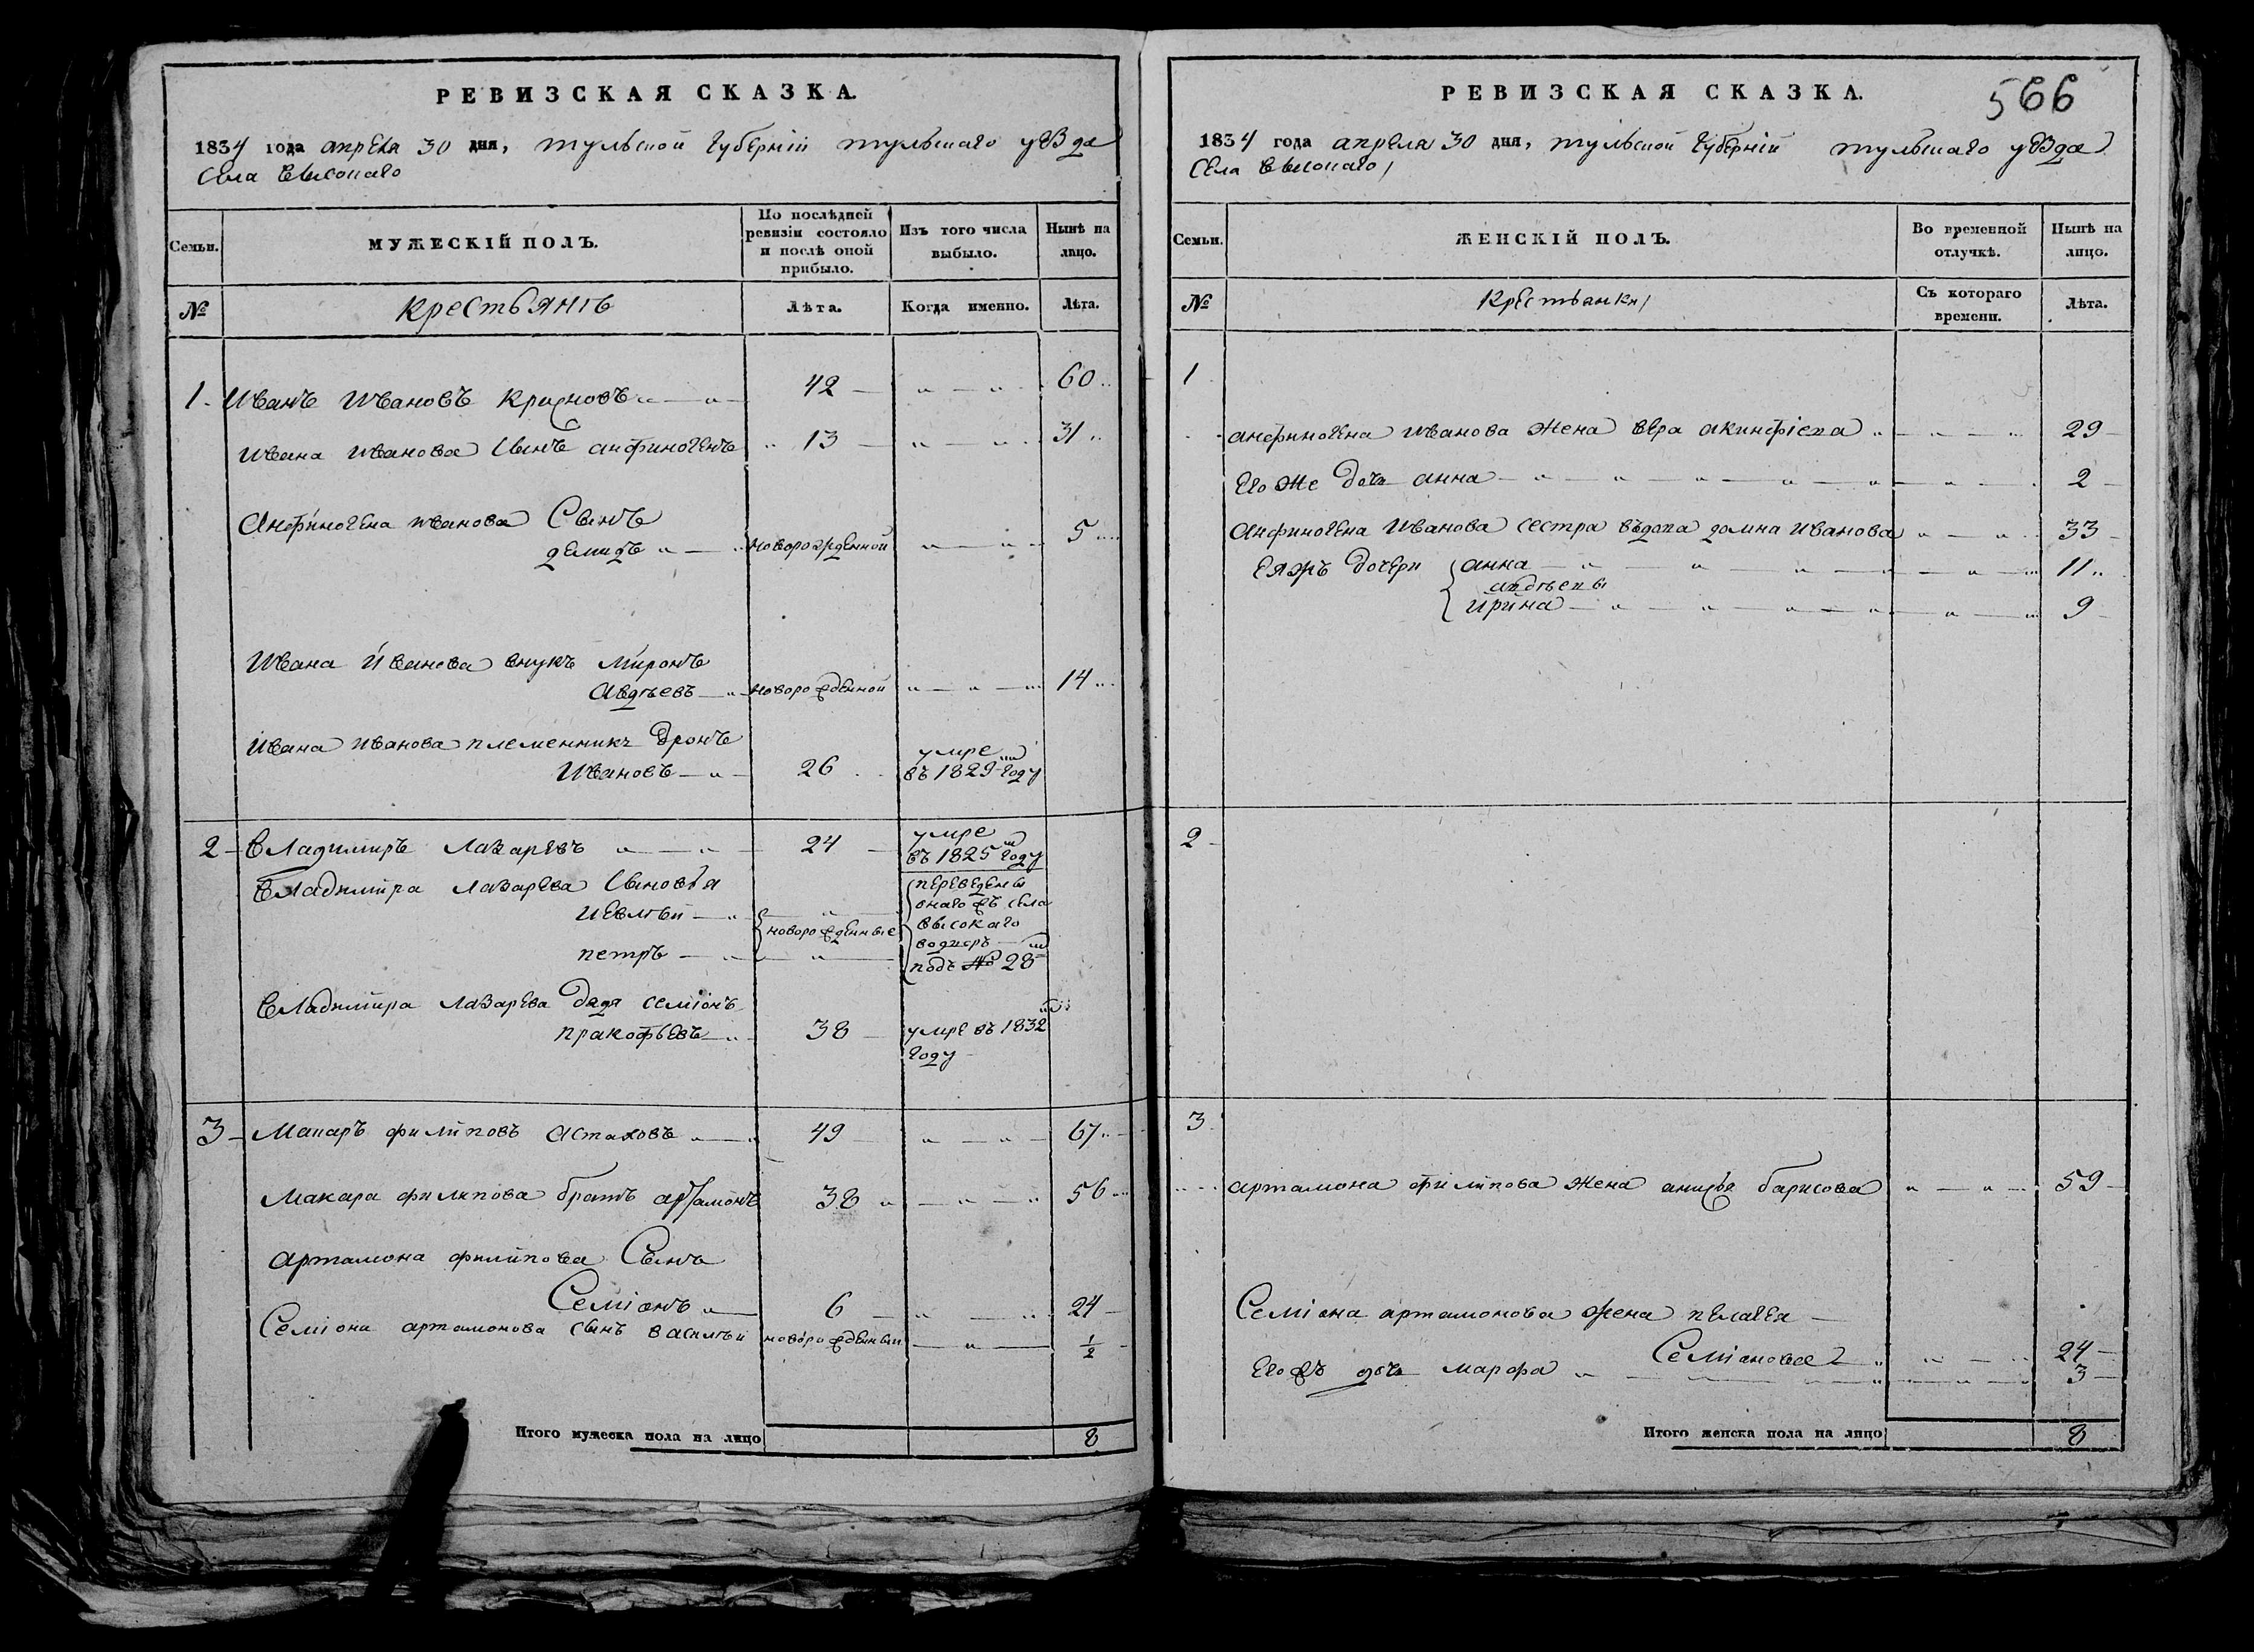 РЕВИЗСКАЯ СКАЗКА.
1834 года апреля 30 дня, тульской губернiи тульскаго уезда
села высокаго
Семьи.
МУЖЕСКIЙ ПОЛЪ.
По послѣдней ревизiи состояло и послѣ оной прибыло.
Изъ того числа выбыло.
Нынѣ на лицо.
№
крестьянъ
Лѣта.
Когда именно.
Лѣта.
1. Иванъ Ивановъ 42 60
Ивана Иванова сынъ анфиногенъ 13 31
Анфиногена иванова Сынъ
демидъ новорожденной 5
Ивана Иванова внукъ Миронъ
Авдѣевъ новорожденной 14
Ивана Иванова племенникъ Дронъ
Ивановъ 26 умре въ 1829 году
2 Владимиръ Лазаревъ 24 умре въ 1825 году
Владимира Лазарева сыновья
петръ новорожденные
переведены
села
высокаго
подъ № 28
Владимира Лазарева дядя семiонъ
пракофьевъ 38 умре въ 1832
году
3 Макаръ филиповъ Астаховъ 49 67
Макара филипова братъ артамонъ 38 56
артамона филипова Сынъ
Семiонъ 6 24
Семiона артамонова сынъ василѣй новорожденный 1/2
Итого мужеска пола на лицо 8
566
РЕВИЗСКАЯ СКАЗКА.
1834 года апреля 30 дня, тульской губернiй тульскаго уезда
села высокаго
Семьи.
ЖЕНСКIЙ ПОЛЪ.
Во временной отлучкѣ.
Нынѣ на лицо.
№
Крестьянки
Съ котораго времени.
Лѣта.
1
анфиногена иванова жена вера акинфiева 29
его же дочь анна 2
Анфиногена Иванова сестра въдова домна иванова 33
еяжъ дочери анна 11
авдѣевы
ирина 9
2
3
артамона филипова жена барисова 59
Семiона артамонова жена пелагея
Семiонова 24
егожъ дочь марфа 3
Итого женска пола на лицо 8